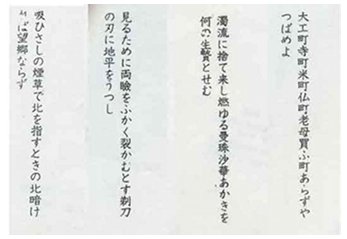 大工町寺町米町仏町老母買ふ町あらずや
つばめよ
濁流に捨て来し燃ゆる曼珠沙華あかきを
何の生贄とせむ
見るために両瞼をふかく裂かむとす剃刀
の刃に地平をうつし
吸ひさしの煙草で北を指すときの北暗け
れば望郷ならず